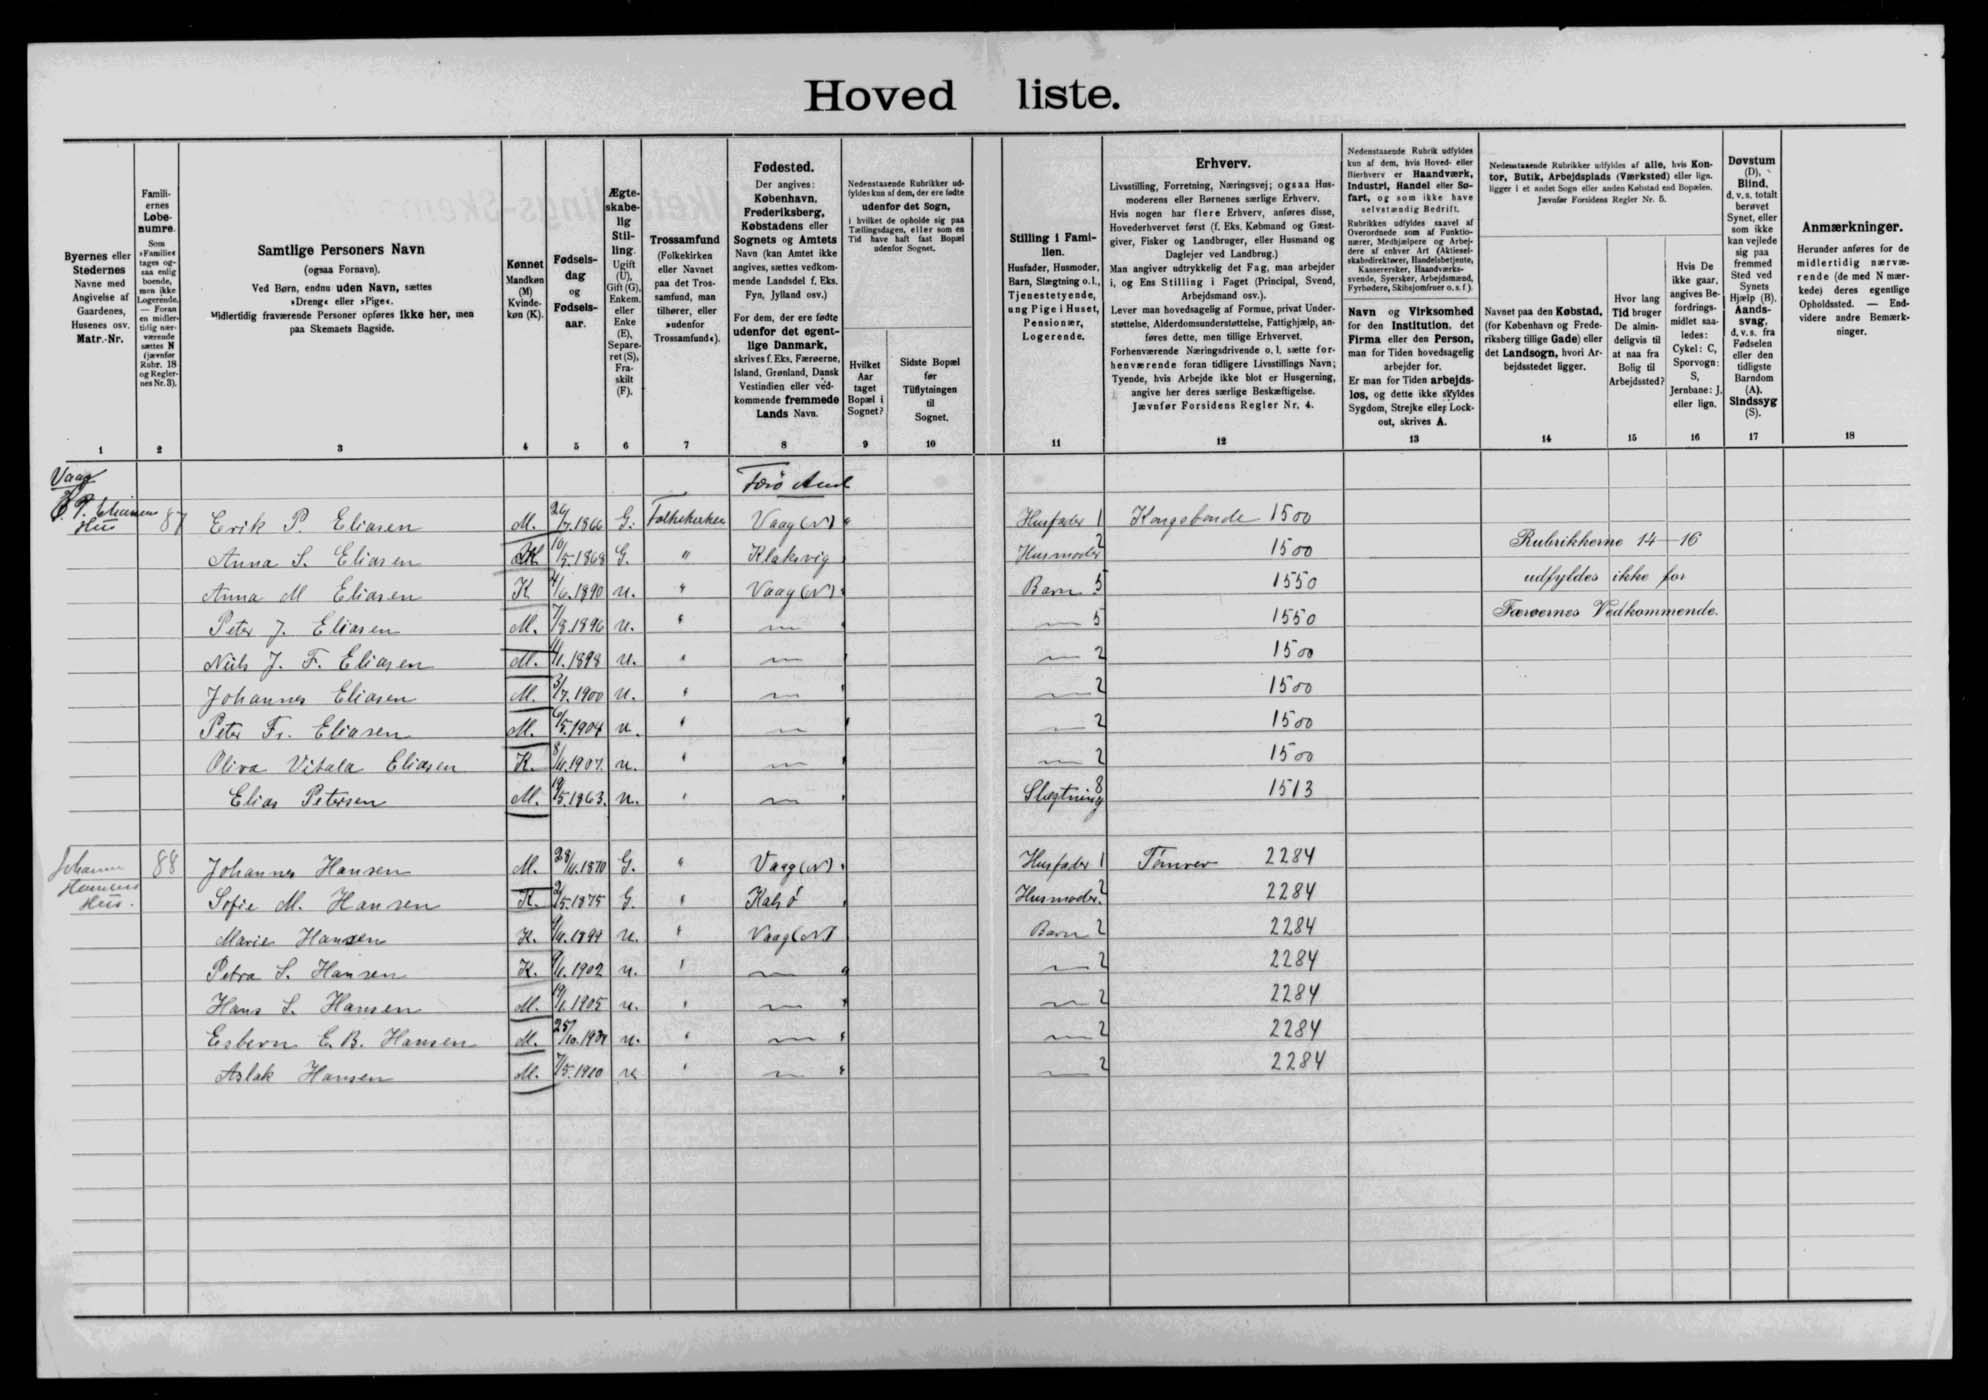 Hoved liste.
Byernes eller Stedernes Navne med Angivelse af Gaardenes, Husenes osv. Matr.-Nr.
Famili-
ernes
Løbe-
numre.
Som
»Familie«
tages og-
saa enlig
boende,
men ikke
Logerende.
— Foran
en midler-
tidig nær-
værende
sættes N
(jævnfør
Rubr. 18
og Regler-
nes Nr. 3).
Samtlige Personers Navn
(ogsaa Fornavn).
Ved Børn, endnu uden Navn, sættes
»Dreng« eller »Pige«.
Midlertidig fraværende Personer opføres ikke her, men
paa Skemaets Bagside.
Kønnet
Mandkøn
(M)
Kvinde-
køn (K).
Fødsels-
dag
og
Fødsels-
aar.
Ægte-
skabe-
lig
Stil-
ling.
Ugift
(U),
Gift (G),
Enkem.
eller
Enke
(E),
Separe-
ret (S),
Fra-
skilt
(F).
Trossamfund
(Folkekirken
eller Navnet
paa det Tros-
samfund, man
tilhører, eller
»udenfor
Trossamfund«).
Fødested.
Der angives:
København,
Frederiksberg,
Købstadens eller
Sognets og Amtets
Navn (kan Amtet ikke
angives, sættes vedkom-
mende Landsdel f. Eks.
Fyn, Jylland osv.)
For dem, der ere fødte
udenfor det egent-
lige Danmark,
skrives f. Eks. Færøerne,
Island, Grønland, Dansk
Vestindien eller ved-
kommende fremmede
Lands Navn.
Nedenstaaende Rubrikker ud-
fyldes kun af dem, der ere fødte
udenfor det Sogn,
i hvilket de opholde sig paa
Tællingsdagen, eller som en
Tid have haft fast Bopæl
udenfor Sognet.
Hvilket
Aar
taget
Bopæl i
Sognet?
Sidste Bopæl
før
Tilflytningen
til
Sognet.
Stilling i Fami-
lien.
Husfader, Husmoder,
Barn, Slægtning o.l.,
Tjenestetyende,
ung Pige i Huset,
Pensionær,
Logerende.
Erhverv.
Livsstilling, Forretning, Næringsvej; ogsaa Hus-
moderens eller Børnenes særlige Erhverv.
Hvis nogen har flere Erhverv, anføres disse,
Hovederhvervet først (f. Eks. Købmand og Gæst-
giver, Fisker og Landbruger, eller Husmand og
Daglejer ved Landbrug.)
Man angiver udtrykkelig det Fag, man arbejder
i, og Ens Stilling i Faget (Principal, Svend,
Arbejdsmand osv.).
Lever man hovedsagelig af Formue, privat Under-
støttelse, Alderdomsunderstøttelse, Fattighjælp, an-
føres dette, men tillige Erhvervet.
Forhenværende Næringsdrivende o. l. sætte for-
henværende foran tidligere Livsstillings Navn;
Tyende, hvis Arbejde ikke blot er Husgerning,
angive her deres særlige Beskæftigelse.
Jævnfør Forsidens Regler Nr. 4.
Nedenstaaende Rubrik udfyldes
kun af dem, hvis Hoved- eller
Bierhverv er Haandværk,
Industri, Handel eller Sø-
fart, og som ikke have
selvstændig Bedrift.
Rubrikken udfyldes saavel af
Overordnede som af Funktio-
nærer, Medhjælpere og Arbej-
dere af enhver Art (Aktiesel-
skabsdirektører, Handelsbetjente,
Kassererker, Haandværks-
svende, Syersker, Arbejdsmænd,
Fyrbødere, Skibsjomfruer o. s. f.).
Navn og Virksomhed
for den Institution, det
Firma eller den Person,
man for Tiden hovedsagelig
arbejder for.
Er man for Tiden arbejds-
løs, og dette ikke skyldes
Sygdom, Strejke eller Lock-
out, skrives A.
Nedenstaaende Rubrikker udfyldes af alle, hvis Kon-
tor, Butik, Arbejdsplads (Værksted) eller lign.
ligger i et andet Sogn eller anden Købstad end Bopælen.
Jævnfør Forsidens Regler Nr. 5.
Navnet paa den Købstad,
(for København og Frede-
riksberg tillige Gade) eller
det Landsogn, hvori Ar-
bejdsstedet ligger.
Hvor lang
Tid bruger
De almin-
deligvis til
at naa fra
Bolig til
Arbejdssted?
Hvis De
ikke gaar,
angives Be-
fordrings-
midlet saa-
ledes:
Cykel: C,
Sporvogn:
S,
Jernbane: J,
eller lign.
Døvstum
(D),
Blind,
d. v. s. totalt
berøvet
Synet, eller
som ikke
kan vejlede
sig paa
fremmed
Sted ved
Synets
Hjælp (B).
Aands-
svag,
d. v. s. fra
Fødselen
eller den
tidligste
Barndom
(A).
Sindssyg
(S).
Anmærkninger.
Herunder anføres for de
midlertidig nærvæ-
rende (de med N mær-
kede) deres egentlige
Opholdssted. — End-
videre andre Bemærk-
ninger.
1 2 3 4 5 6 7 8 9 10 11 12 13 14 15 16 17 18
Vaag
Færø Amt
E. P. Eliasens Hus 87 Erik P. Eliasen M. 26/7.1866 G. Folkekirken Vaag (N) " Husfader 1 Kongsbonde 1500
Anna S. Eliasen K 16/5.1868 G. " Klaksvig Husmoder 2 1500 Rubrikkerne 14—16
Anna M Eliasen K 4/6.1890 u. " Vaag (N) Barn 5 1550 udfyldes ikke for
Peter J. Eliasen M. 7/8.1896 u. " — 5 1550 Færøernes Vedkommende.
Niels J. F. Eliasen M. 4/1.1898 u. " — 2 1500
Johannes Eliasen M. 3/7.1900 u. " — 2 1500
Peter Fr. Eliasen M. 6/5.1904 u. " — 2 1500
Oliva Vitala Eliasen K. 8/11.1907. u. " — 2 1500
Elias Petersen M. 19/5.1863. u. " — Slægtning 8 1513
Hansens Hus. 88 Johannes Hansen M. 28/11.1870 G. " Vaag (N) Husfader 1 Tømrer 2284
Sofie M. Hansen K. 2/5.1875 G. " Kalsø Husmoder. 2 2284
Marie Hansen K. u. " Vaag (N) Barn 2 2284
Petra S. Hansen K. 9/1.1902 u. " — 2 2284
Hans S. Hansen M. 19/1.1905 u. " — 2 2284
Esbern E. B. Hansen M. u. " — 2 2284
Aslak Hansen M. 7/5.1910 u " — 2 2284